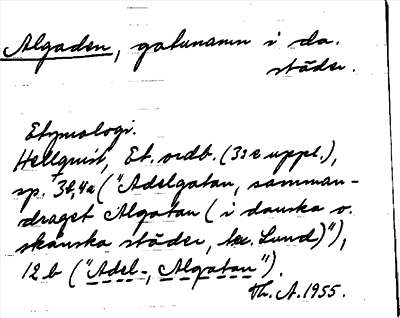 Algaden, gatunamn i da.
städer.
Etymologi.
Hellquist, Et. ordb. (3:e uppl.),
sp. 3b, 4a ("Adelgatan, samman-
draget Algatan (i danska o.
skånska städer, t.ex. Lund)"),
12 b ("Adel-, Algatan").
Th. A. 1955.